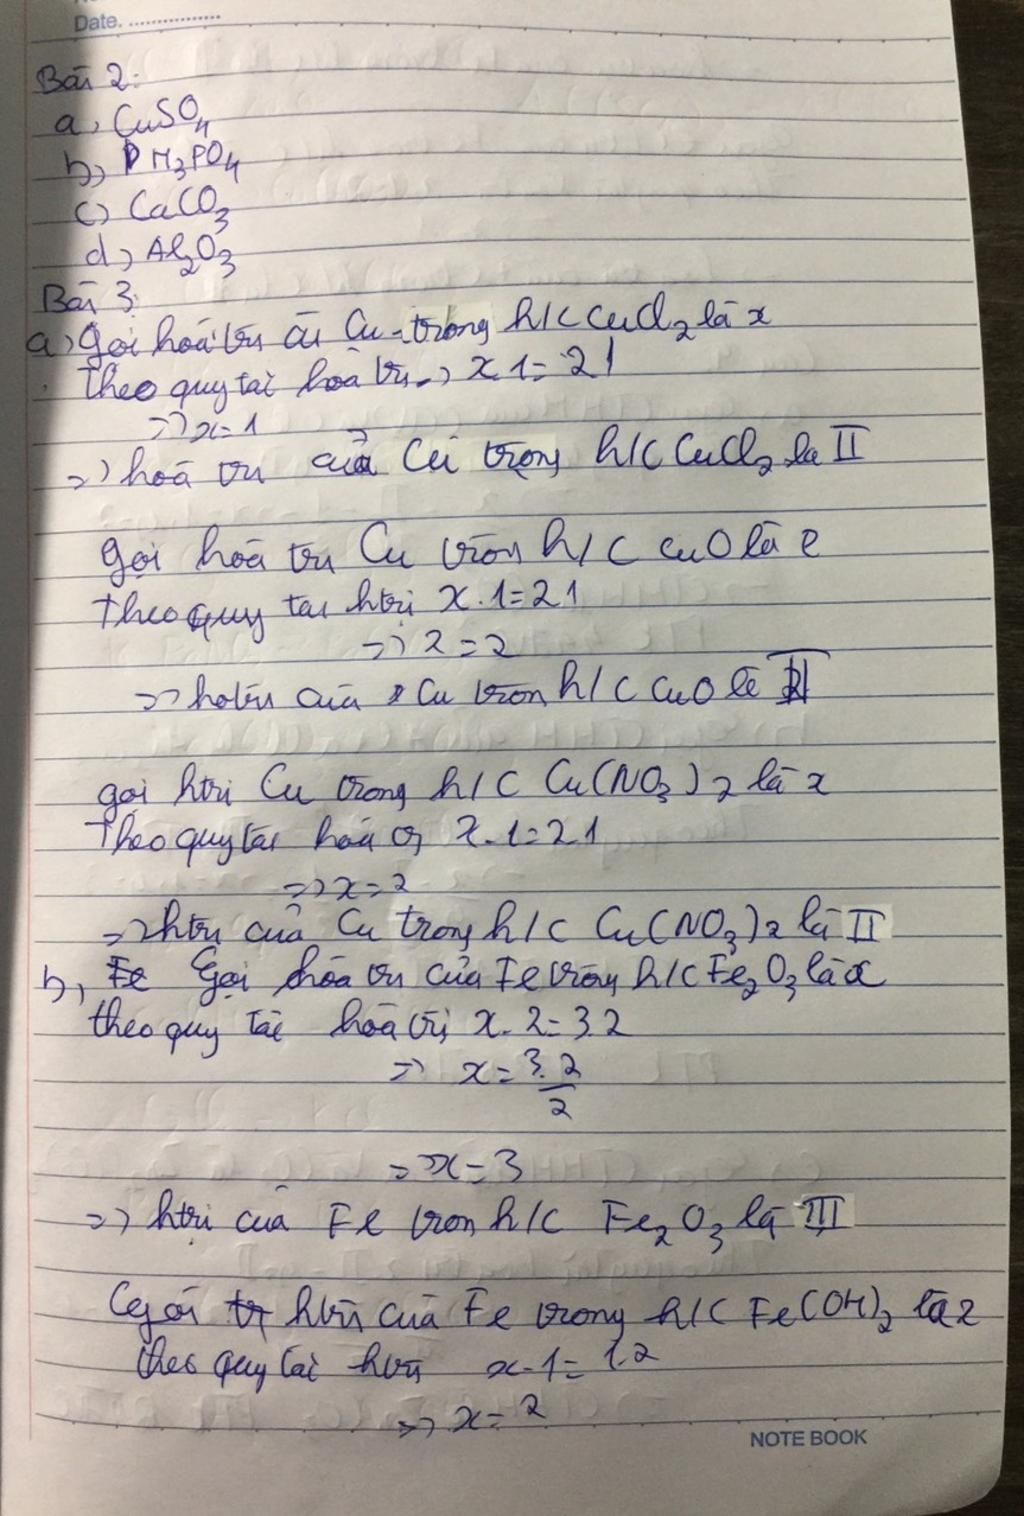 Date. ................
Bài 2:
a, CuSO4
b, H3PO4
c, CaCO3
d, Al2O3
Bài 3:
a, gọi hoá trị Cu trong h/c CuCl2 là x
Theo quy tắc hoá trị => x.1 = 2.1
=> x = 1
=> hoá trị của Cu trong h/c CuCl2 là II
gọi hoá trị Cu tron h/c CuO là
Theo quy tắc htrị x.1 = 2.1
=> x = 2
=> của Cu tron h/c CuO là II
gọi htrị Cu trong h/c Cu(NO3)2 là x
Theo quy tắc hoá x.1 = 2.1
=> x = 2
=> htrị của Cu trong h/c Cu(NO3)2 là II
b, Gọi hóa trị của Fe trong h/c Fe2O3 là x
theo quy tắc hoá trị x.2 = 3.2
=> x = 3.2/2
=> x = 3
=> htrị của Fe tron h/c Fe2O3 là III
Gọi htrị của Fe trong h/c Fe(OH)2 là x
theo quy tắc htrị x.1 = 1.2
=> x = 2
NOTE BOOK